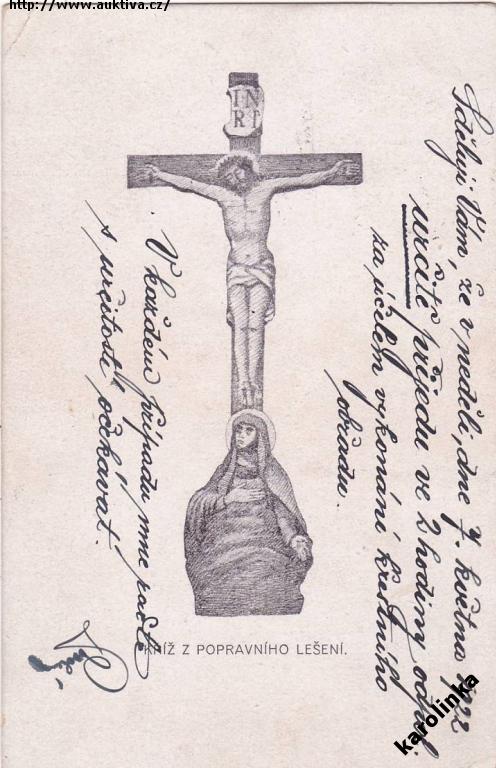 http://www.auktiva.cz/
IN
RI
Sděluji Vám, že v neděli, dne 7. května 1922
určitě přijedu ve 2 hodiny odpol.
za účelem vykonání křestního
obřadu.
V každém případu mne račte
s určitostí očekávat!
KŘÍŽ Z POPRAVNÍHO LEŠENÍ.
karolinka